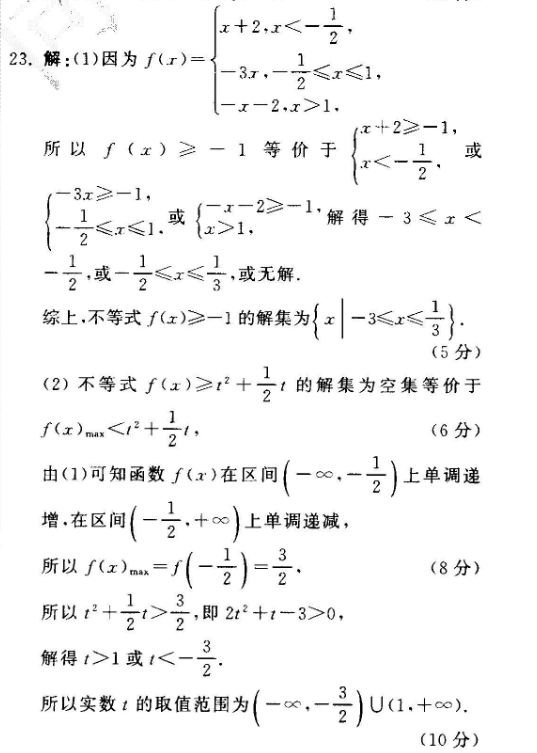 23. 解:(1)因为 f(x)={x+2,x<-1/2, -3x,-1/2≤x≤1, -x-2,x>1.
所以 f(x)≥-1 等价于 {x+2≥-1, x<-1/2, 或
{-3x≥-1, -1/2≤x≤1, 或 {-x-2≥-1, x>1, 解得 -3≤x<
-1/2,或-1/2≤x≤1/3,或无解.
综上,不等式 f(x)≥-1 的解集为{x|-3≤x≤1/3}.
(5分)
(2) 不等式 f(x)≥t²+1/2t 的解集为空集等价于
f(x)max<t²+1/2t, (6分)
由(1)可知函数 f(x)在区间(-∞,-1/2)上单调递
增,在区间(-1/2,+∞)上单调递减,
所以 f(x)max=f(-1/2)=3/2, (8分)
所以 t²+1/2t>3/2,即 2t²+t-3>0,
解得 t>1 或 t<-3/2.
所以实数 t 的取值范围为(-∞,-3/2)∪(1,+∞).
(10分)